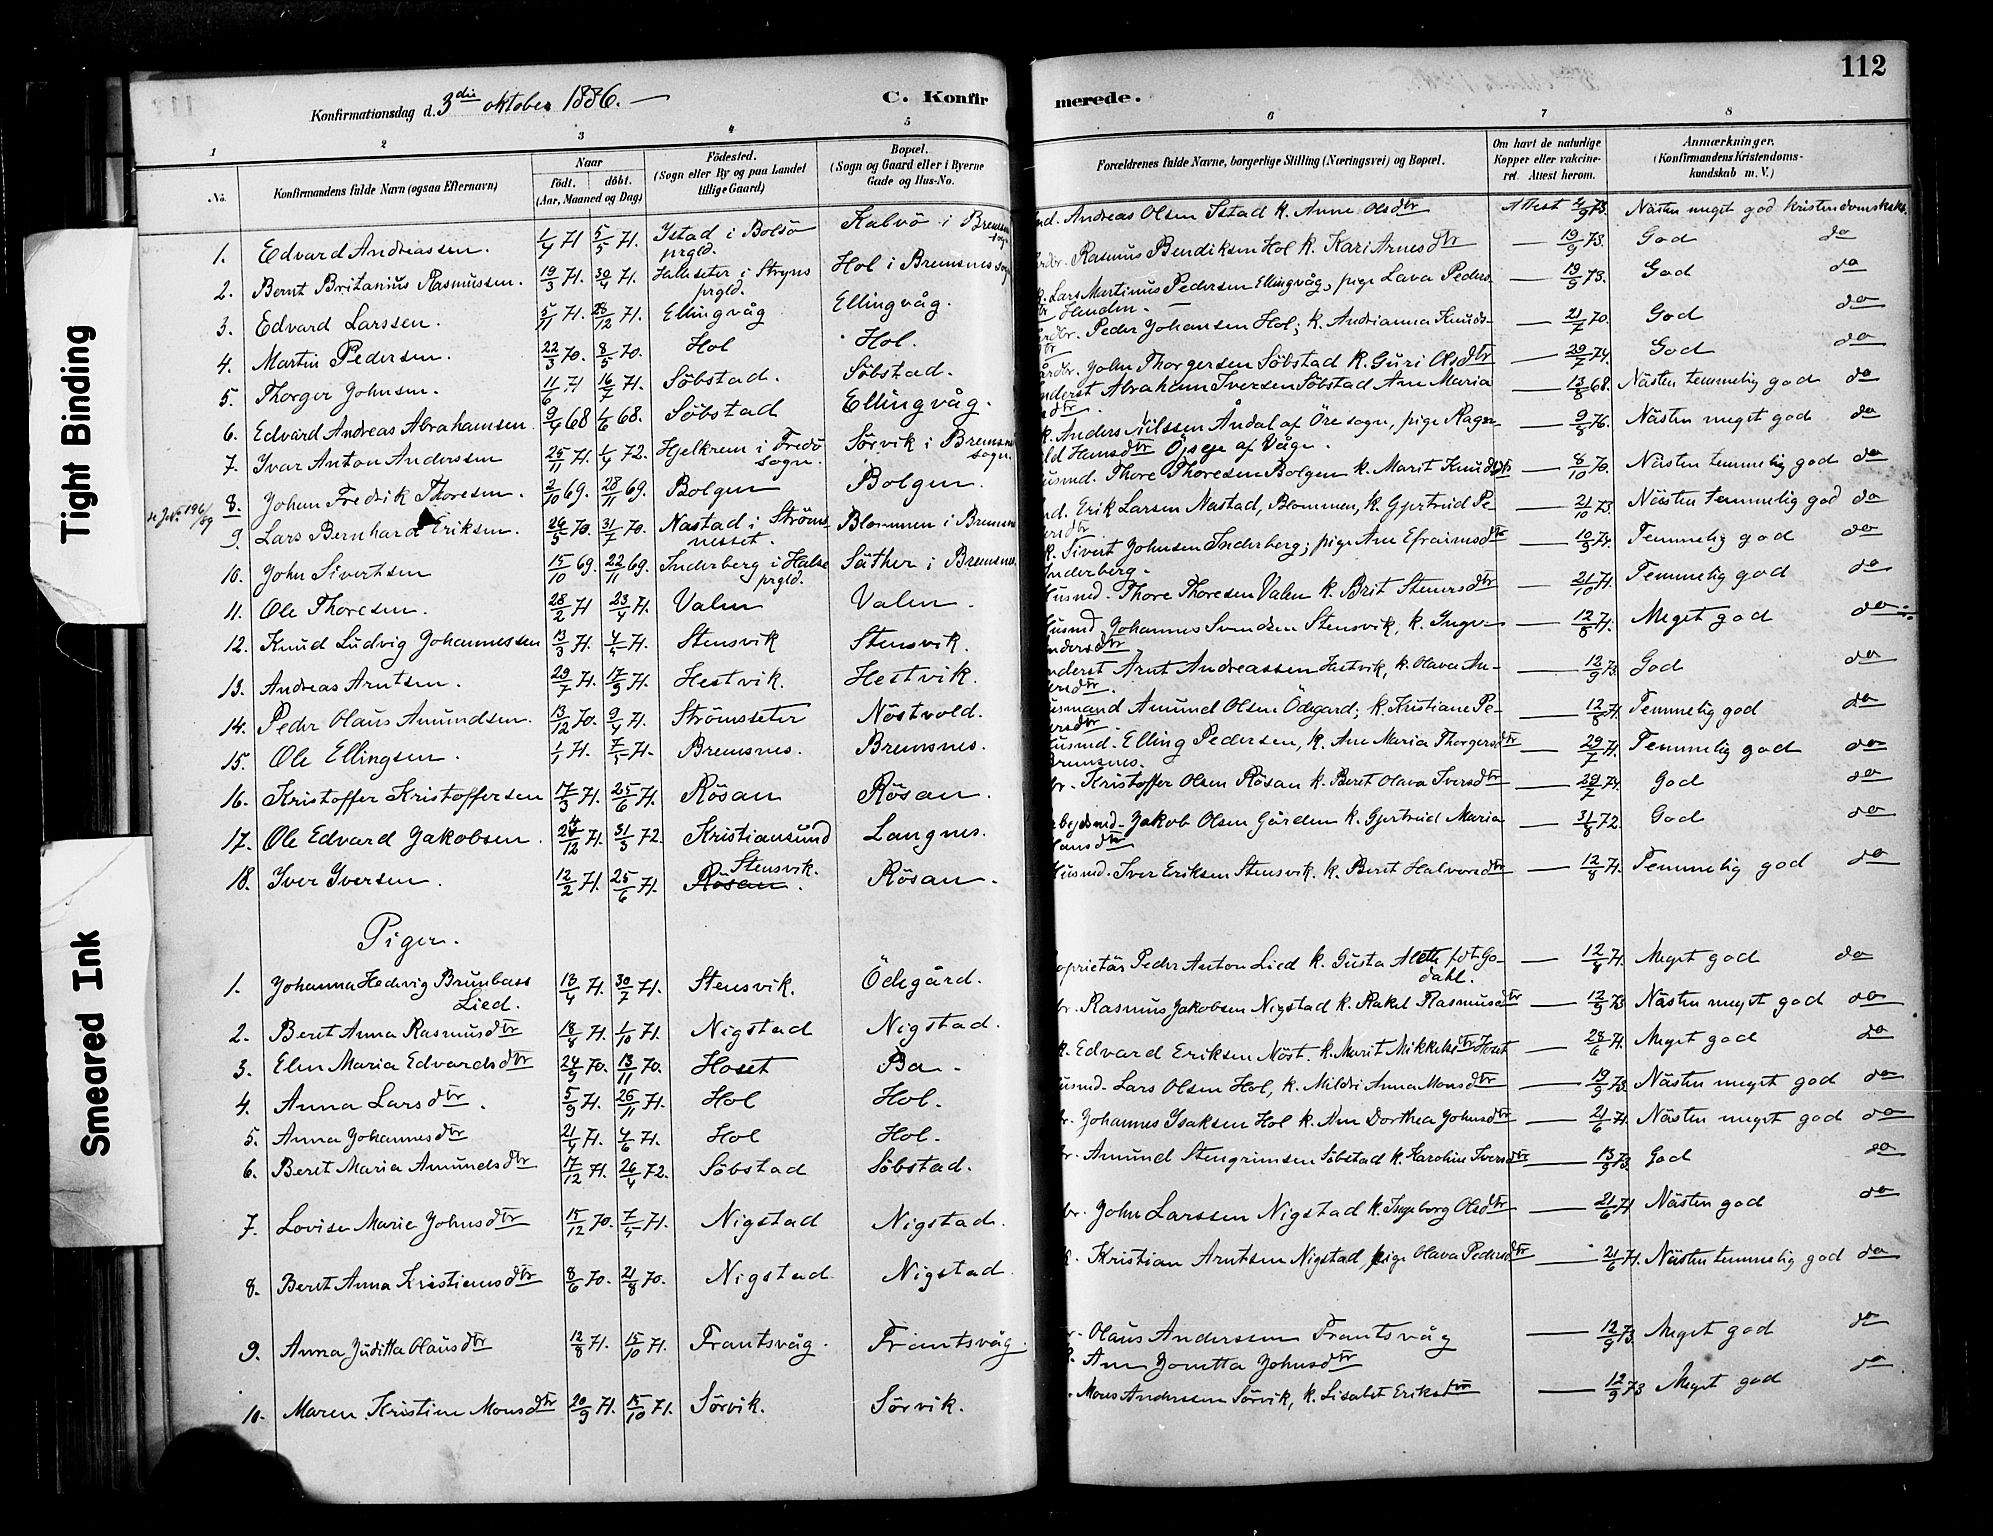 Tight Binding
Smeared Ink
112
Konfirmationsdag d. 3die oktober 1886. —
C. Konfir merede.
1 2 3 4 5 6 7 8
No. Konfirmandens fulde Navn (ogsaa Efternavn) Naar født. døbt. (Aar, Maaned og Dag) Fødested. (Sogn eller By og paa Landet tillige Gaard) Bopæl. (Sogn og Gaard eller i Byerne Gade og Hus-No.
Forældrenes fulde Navne, borgerlige Stilling (Næringsvei) og Bopæl. Om havt de naturlige Kopper eller vakcineret. Attest herom. Anmærkninger. (Konfirmandens Kristendomskundskab m. V.)
1. Edvard Andreassen. 1/4 71 5/5 71. Ystad i Bolsö prgld. Kalvö i Bremsnes sogn Andreas Olsen Istad k. Anne Olsdtr Attest 73. Nästen meget god kristendomskdsk.
2. Bernt Britanius Rasmussen. 19/3 71. 30/4 71. Halseter i Stryns prgld. Hol i Bremsnes sogn Rasmus Bendiksen Hol k. Kari Arnesdtr — 19/9 73. God do
3. Edvard Larssen. 5/11 71. 26/12 71. Ellingvåg Ellingvåg. Lars Martinus Pedersen Ellingvåg, pige Lava Peders- — 19/9 73. God do
4. Martin Pedersen. 22/3 70. 8/5 70. Hol Hol. Peder Johansen Hol; k. Andrianna Knuds- — 21/7 70. God do
5. Thorger Johnsen. 11/6 71 16/7 71. Söbstad. Söbstad. John Thorgersen Söbstad k. Guri Olsdtr — 29/7 74. God do
6. Edvard Andreas Abrahamsen. 9/4 68 1/6 68. Söbstad Ellingvåg. Abraham Iversen Söbstad Ane Maria — 13/8 68. Nästen temmelig god do
7. Yvar Anton Anderssen 25/11 71. 1/4 72. Hjelkrem i Fredö sogn. Sörvik i Bremsnes sogn. Anders Nilssen Åndal af Öre sogn, pige Ragn- Hansdtr Öjseje af Våge. — 9/8 76. Nästen meget god do
8. Johan Fredrik Thoresen. 2/10 69. 28/11 69. Bolgen Bolgen. Thore Thoresen Bolgen k. Marit Knudsdtr — 8/10 70. Nästen temmelig god do
196/89
9. Lars Bernhard Eriksen. 26/5 70. 31/7 70. Nastad i Strömsnesset. Blommen i Bremsnes Erik Larsen Nastad, Blommen, k. Gjertrud Pe- — 21/10 73. Nästen temmelig god do
10. John Sivertsen 15/10 69. 22/11 69. Inderberg i Halse prgld. Säther i Bremsnes. Sivert Johnsen Inderberg; pige Ane Efraimsdtr Inderberg. — 10/9 74. Temmelig god do
11. Ole Thoresen. 28/2 71 23/4 71. Valen Valen. Husmd. Thore Thoresen Valen k. Brit Stenersdtr — 21/10 71. Temmelig god do
12. Knud Ludvig Johannessen 13/3 71. 71. Stensvik Stensvik. Husmd. Johannes Svendsen Stensvik, k. Inge- — 12/8 71. Meget god do
13. Andreas Arntsen. 29/7 71. 17/9 71. Hestvik. Hestvik. Arnt Andreassen Hestvik, k. Olava An- — 12/9 73. God do
14. Peder Olaus Amundsen. 13/12 70. 9/4 71. Strömsseter Nöstvold. Husmand Amund Olsen Ödegard; k. Kristiane Pe- — 12/8 71. Temmelig god do
15. Ole Ellingsen. 71. 71. Bremsnes. Bremsnes. Husmd. Elling Pedersen, k. Ane Maria Thorgersdtr Bremsnes. — 29/7 71. Temmelig god do
16. Kristoffer Kristoffersen 17/3 71. 25/6 71. Rösan Rösan. Kristoffer Olsen Rösan k. Beret Olava Iversdtr — 29/7 74. God do
17. Ole Edvard Jakobsen. 71. 31/3 72. Kristiansund Langnes. Jakob Olsen Gården k. Gjertrud Maria — 31/8 72. God do
18. Yver Yversen. 12/2 71. 25/6 71. Stensvik. Rösan. Rösan. Husmd. Iver Eriksen Stensvik. k. Beret Halvorsdtr — 12/8 71. Temmelig god do
Piger.
1. Johanna Hedevig Brunbass Lied. 13/4 71. 30/7 71. Stensvik. Ödegård. Peder Anton Lied k. Gusta födt Go-dahl. — 12/8 71. Meget god do
2. Beret Anna Rasmusdtr 18/8 71. 1/10 71. Nigstad Nigstad. Rasmus Jakobsen Nigstad k. Rakel Rasmusdtr — 12/9 73 Nästen meget god do
3. Elen Maria Edvardsdtr 24/9 70. 13/11 70. Hoset Ba. Edvard Eriksen Nöst. k. Marit Mikkelsdtr Hoset — 28/6 71. Meget god do
4. Anna Larsdtr. 5/9 71. 26/11 71. Hol Hol. Husmd. Lars Olsen Hol, k. Mildri Anna Monsdtr — 19/9 73. Nästen meget god do
5. Anna Johannesdtr 21/4 71. 4/6 71. Hol Hol. Johannes Isaksen Hol k. Ane Dorthea Johnsdtr — 21/6 71. Nästen meget god do
6. Beret Maria Amundsdtr 17/12 71. 26/4 72. Söbstad Söbstad. Amund Stengrimsen Söbstad k. Karoline Iversdtr — 13/9 73. God do
7. Lovise Marie Johnsdtr 15/12 70. 71. Nigstad Nigstad. John Larssen Nigstad k. Ingeborg Olsdtr — 21/6 71 Nästen god do
8. Beret Anna Kristiansdtr 8/6 70. 21/8 70. Nigstad Nigstad. Kristian Arntsen Nigstad, pige Olava Pedersdtr — 21/6 71. Nästen temmelig god do
9. Anna Juditta Olausdtr 12/8 71. 15/10 71. Frantsvåg. Frantsvåg. Olaus Anderssen Frantsvåg — 12/9 73. Meget god do
Ane Jonetta Johnsdtr
10. Maren Kristine Monsdtr 20/9 71. 15/10 71. Sörvik. Sörvik. Mons Anderssen Sörvik, k. Lisabet Eriksdtr — 12/9 73 Meget god do